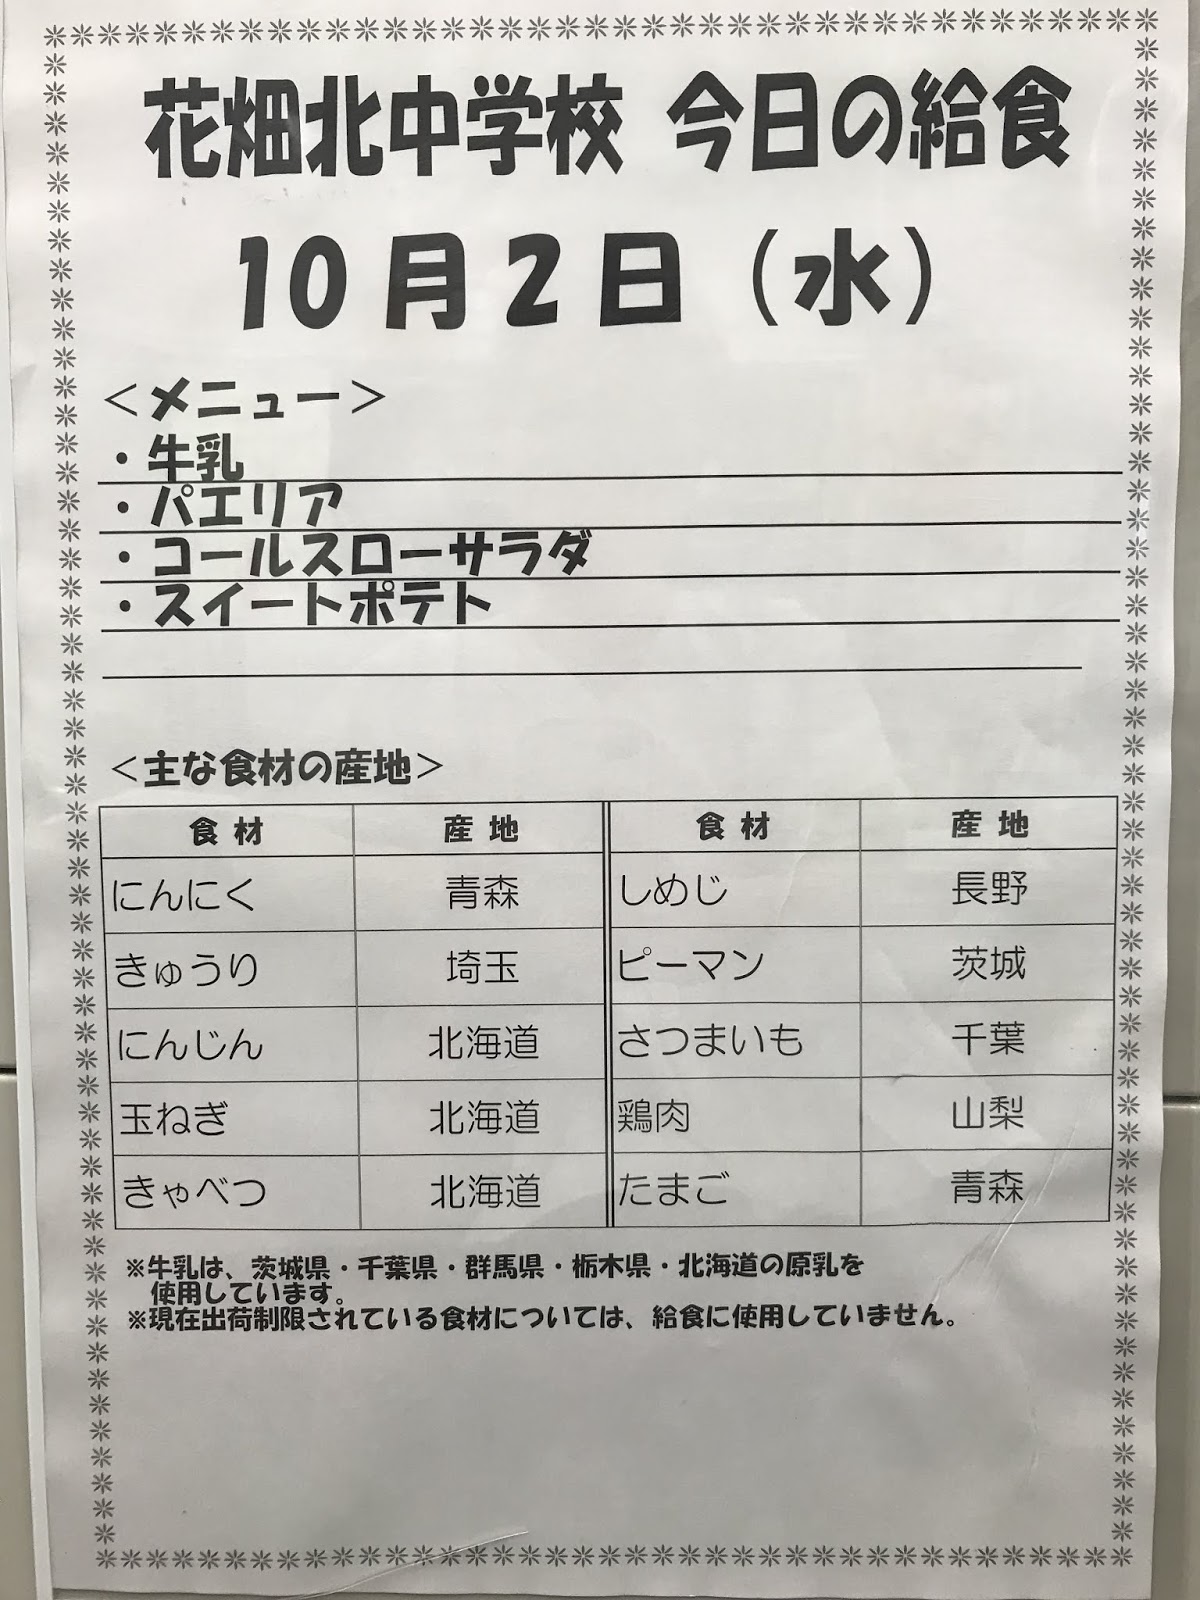 花畑北中学校 今日の給食
10月2日（水）
＜メニュー＞
・牛乳
・パエリア
・コールスローサラダ
・スイートポテト
＜主な食材の産地＞
食材 産地 食材 産地
にんにく 青森 しめじ 長野
きゅうり 埼玉 ピーマン 茨城
にんじん 北海道 さつまいも 千葉
玉ねぎ 北海道 鶏肉 山梨
きゃべつ 北海道 たまご 青森
※牛乳は、茨城県・千葉県・群馬県・栃木県・北海道の原乳を
使用しています。
※現在出荷制限されている食材については、給食に使用していません。